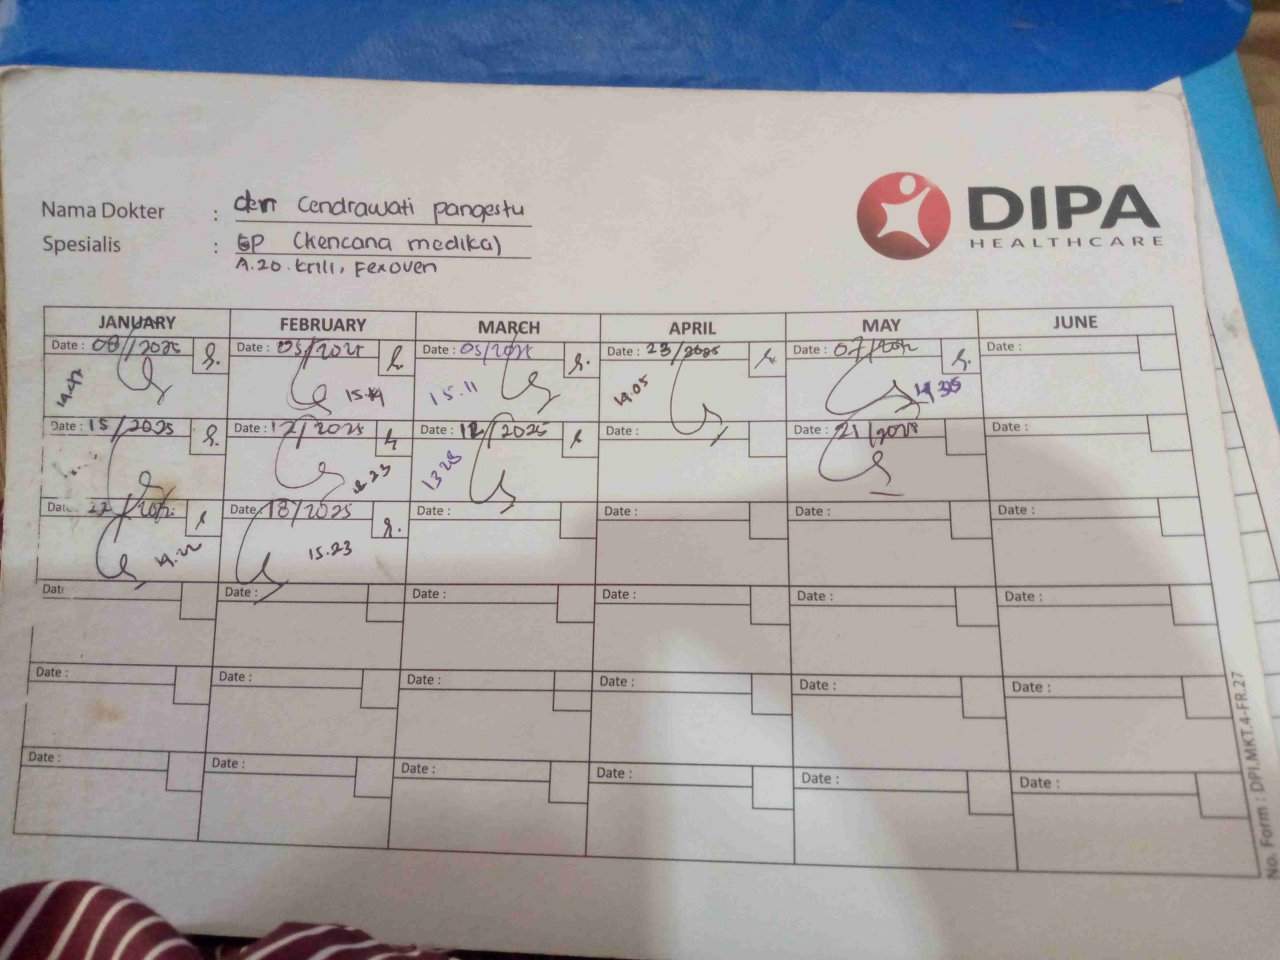 DIPA
HEALTHCARE
Nama Dokter : Cendrawati pangestu
Spesialis : GP (kencana medika)
A.20. krill, Fexoven
JANUARY FEBRUARY MARCH APRIL MAY JUNE
Date : 08/2025 Date : 05/2025 Date : 05/2025 Date : 23/2025 Date : 07/2025 Date :
15.19 15.11 14.05
Date : 15/2025 Date : 12/2025 Date : 12/2025 Date : Date : 21/2025 Date :
13.28
Date : 22/2025 Date : 18/2025 Date : Date : Date : Date :
14.22 15.23
Date : Date : Date : Date : Date :
Date : Date : Date : Date : Date : Date :
Date : Date : Date : Date : Date : Date :
No. Form : DPI.MKT.4-FR.27